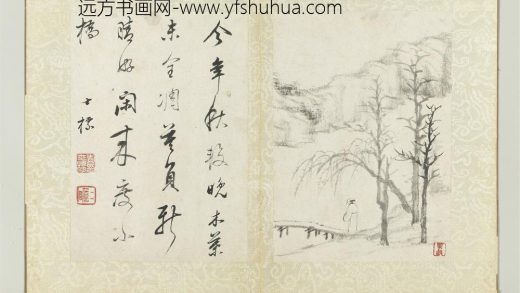 远方书画网-www.yfshuhua.com
今年秋較晚木葉
未全凋莫負新
晴好閑來度小
橋
士標